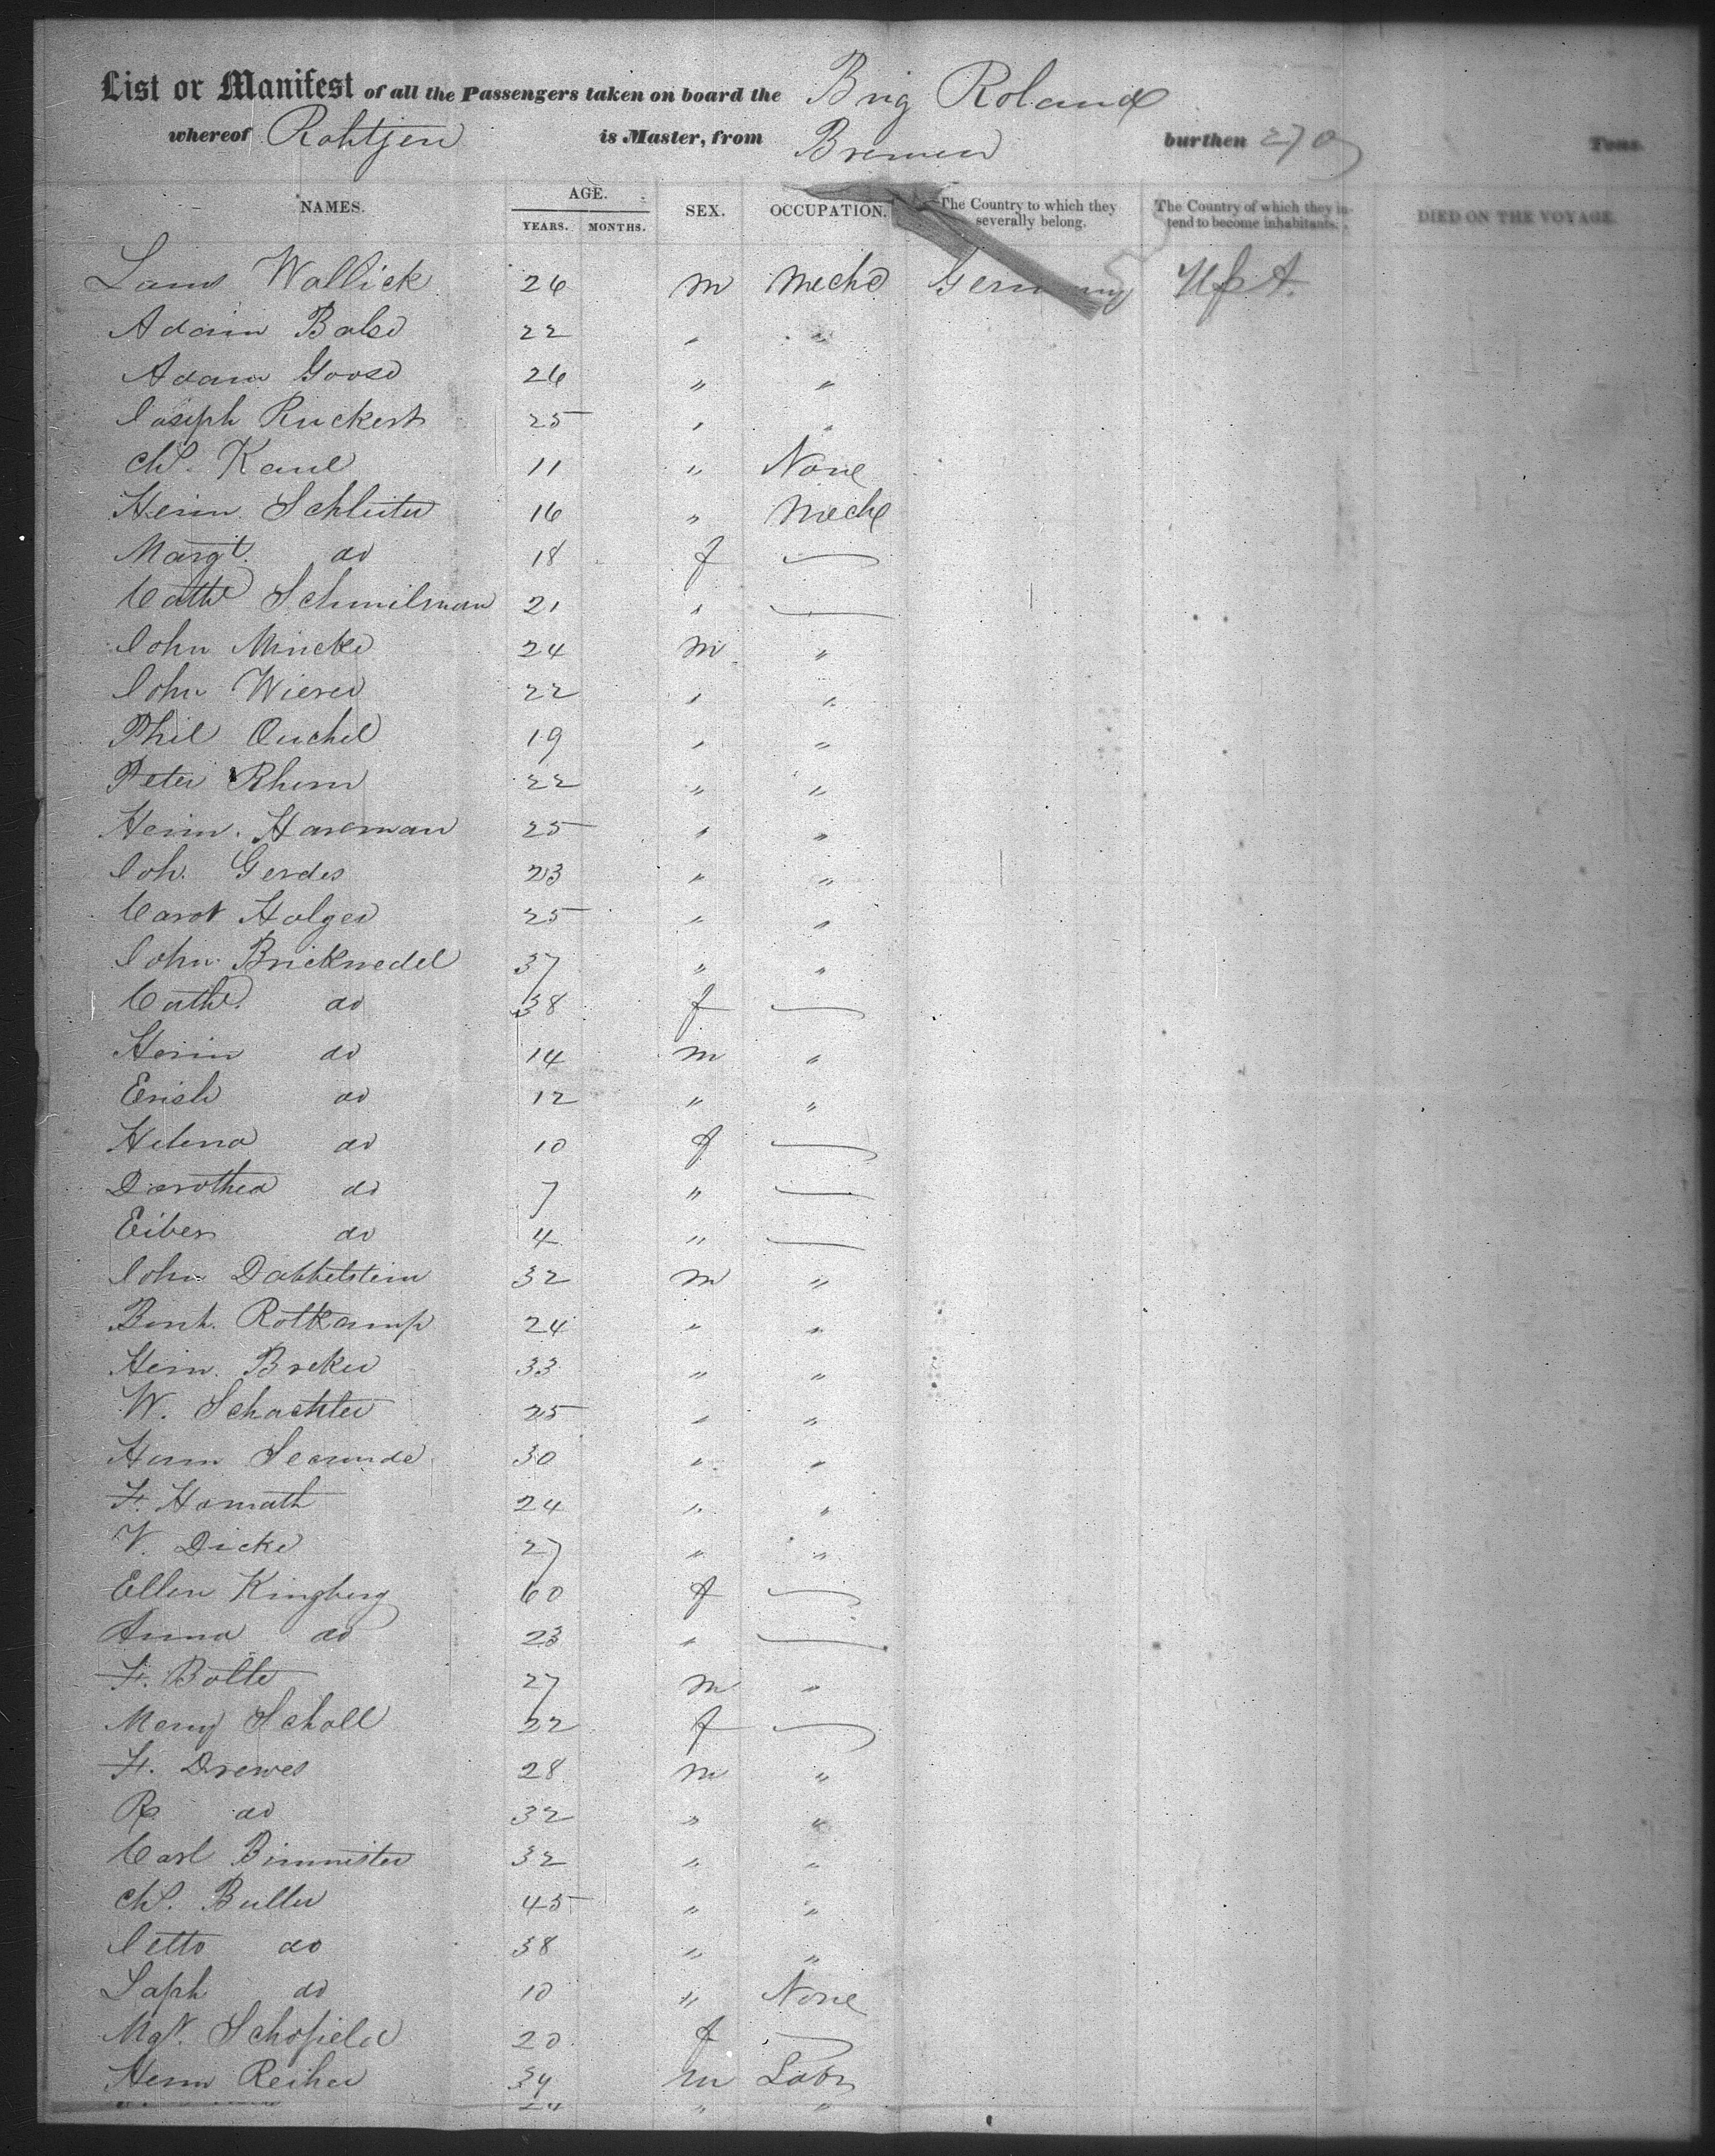 List or Manifest of all the Passengers taken on board the Brig Roland
whereof Rohtjen is Master, from Bremen burthen 270 Tons.
NAMES. AGE. YEARS. MONTHS. SEX. OCCUPATION. The Country to which they severally belong. The Country of which they intend to become inhabitants. DIED ON THE VOYAGE.
Wallick 26 m Mech Germany
Adam Balse 22 " "
Adam Goose 26 " "
Joseph Ruckert 25 " "
Ch. Kaul 11 " None
Heinr. Schluter 16 " Mech
Margt. do 18 f —
Cathe Schmilsman 21 " —
John Mincke 24 m "
John Wierer 22 " "
Phil Quchel 19 " "
Peter Rhum 22 " "
Heinr. Haveman 25 " "
Joh. Gerdes 23 " "
Holger 25 " "
John Brickwedel 37 " "
Cathe. do 38 f —
Heinr do 14 m "
Erich do 12 " "
Helena do 10 f —
Dorothea do 7 " —
do 4 " —
John Dabbelstein 32 m "
Bernh. Rottkamp 24 " "
Heinr. Breker 33 " "
W. Schachter 25 " "
30 " "
F. Homath 24 " "
V. Dicke 27 " "
Ellen Kingberg 60 f —
Anna do 23 " —
F. Bolte 27 m "
Mary Scholl 22 f —
F. Drewes 28 m "
R do 32 " "
Carl Bimmister 32 " "
Ch. Buller 45 " "
Jette do 38 " "
Saph do 10 " None
Mgt. Schofield 20 f —
Herm Reiher 34 m Labr
" "